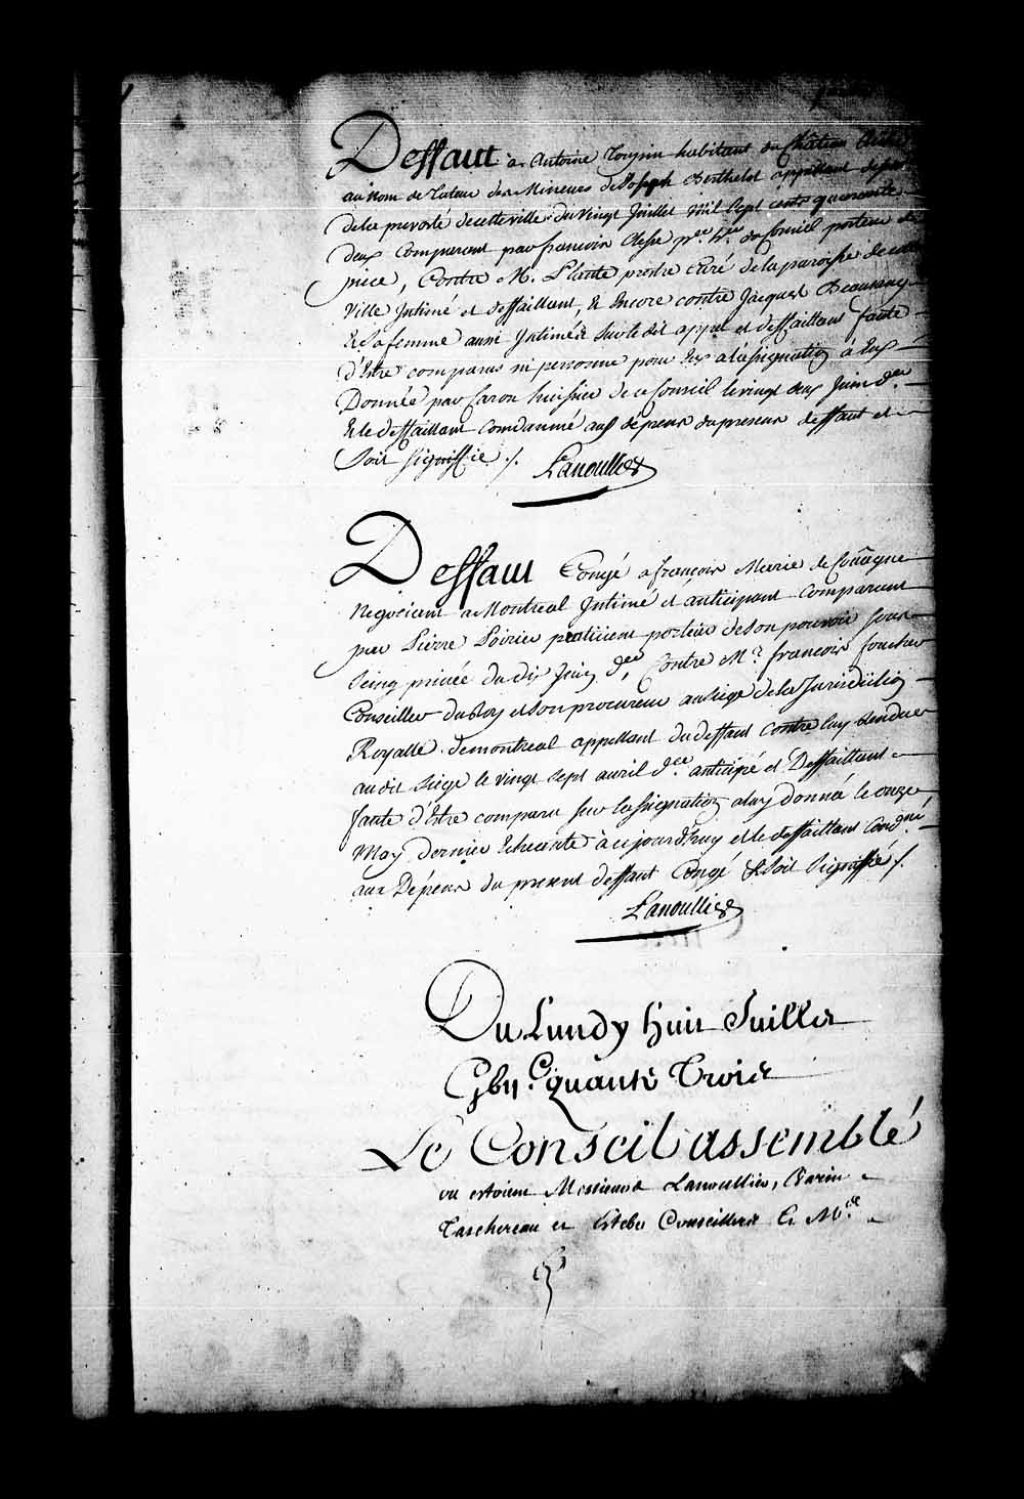 Deffaut à Antoine Toupin habitant du Château Richer
au nom de Tuteur des Mineurs de Joseph Berthelot appellant de
de la prevosté de cette ville du vingt Juillet Mil Sept cents quarante
deux Comparant par francois Clesse pre. hr. du Conseil porteur de
piece, Contre M. Plante prestre curé de la paroisse de cette
Ville Intimé et deffaillant, & Encore contre Jacques Beaunay
& Sa femme aussi Intimés sur le dit appel et deffaillant faute
d'Estre comparus ni personne pour Eux a l'assignation à Eux
Donnée par Caron huissier de ce Conseil le vingt deux Juin der.
& le deffaillant Condamné aux dépens du present deffaut et
Soit Signiffié ./. Lanoullier
Deffaut Congé a françois Marie de Coüagne
Negociant a Montreal Intimé et anticipant Comparant
par Pierre Poirier praticien porteur de Son pouvoir sous
Seing privée du dix Juin der, Contre Mr. francois foucher
Conseiller du Roy et Son procureur au Siege de la Jurisdiction
Royalle de montreal appellant du deffaut contre luy Rendue
au dit Siege le vingt sept avril der. anticipé et Deffaillant
faute d'Estre comparu sur l'assignation a luy donné le onze
May dernier Echeante à ce jourd'huy et le deffaillant Condné.
aux Dépens du present deffaut Congé & Soit Signiffié ./.
Lanoullier
Du Lundy huit Juillet
Gbii.C quante Trois
Le Conseil assemblé
ou estoient Messieurs Lanoullier, Varin
Taschereau et Estebe Conseillers & Me.